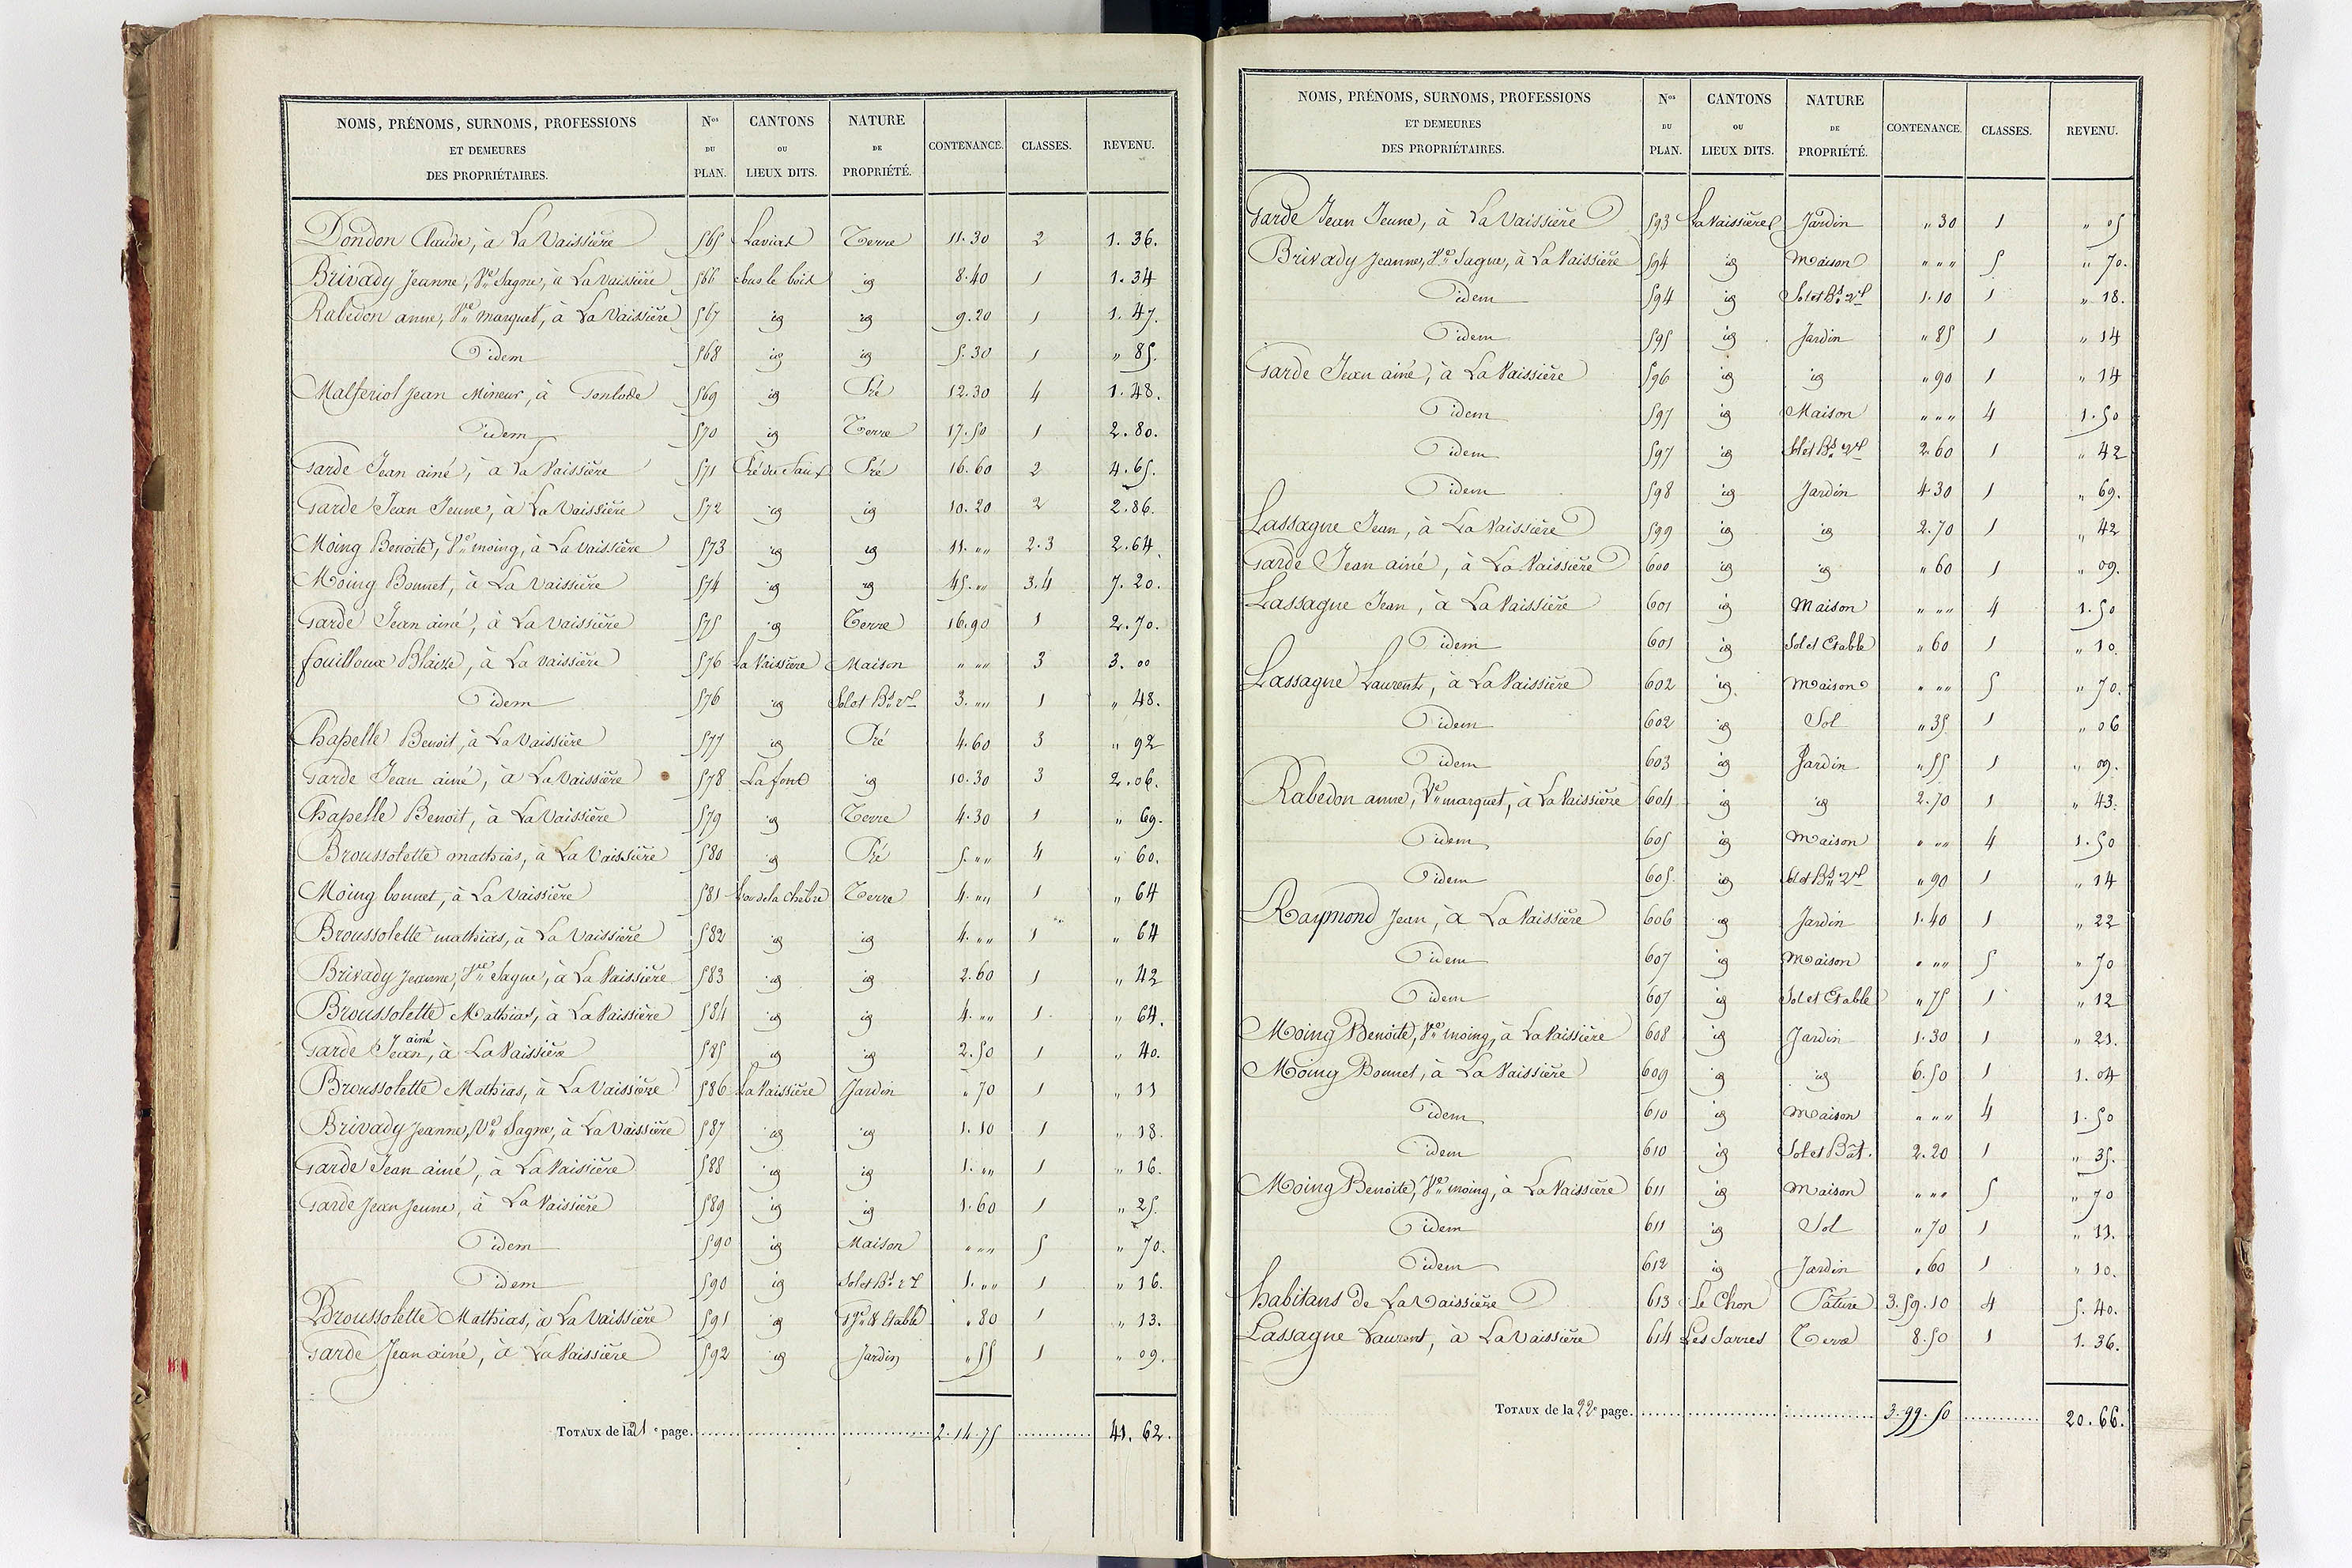 NOMS, PRÉNOMS, SURNOMS, PROFESSIONS ET DEMEURES DES PROPRIÉTAIRES. Nos DU PLAN. CANTONS OU LIEUX DITS. NATURE DE PROPRIÉTÉ. CONTENANCE. CLASSES. REVENU.
Dondon Claude, à La Vaissière 565 Terre 11.30 2 1.36.
Brivady Jeanne, Ve Sagne, à La Vaissière 566 sous le bois id 8.40 1 1.34
Rabedon anne, Ve marquet, à La Vaissière 567 id id 9.20 1 1.47.
Idem 568 id id 5.30 1 " 85.
Malferiol Jean Mineur, à 569 id Pré 12.30 4 1.48.
Idem 570 id Terre 17.50 1 2.80.
Garde Jean ainé, à La Vaissière 571 Pré du Pré 16.60 2 4.65.
Garde Jean Jeune, à La Vaissière 572 id id 10.20 2 2.86.
Moing Benoite, Ve moing, à La Vaissière 573 id id 11. "" 2.3 2.64.
Moing Bonnet, à La Vaissière 574 id id 45. "" 3.4 7.20.
Garde Jean ainé, à La Vaissière 575 id Terre 16.90 1 2.70.
fouilloux Blaize, à La Vaissière 576 La Vaissière Maison " "" 3 3.00
Idem 576 id Sol et Bt. rl 3. "" 1 " 48.
Chapelle Benoit, à La Vaissière 577 id Pré 4.60 3 " 92
Garde Jean ainé, à La Vaissière 578 La font id 10.30 3 2.06.
Chapelle Benoit, à La Vaissière 579 id Terre 4.30 1 " 69.
Broussolette mathias, à La Vaissière 580 id Pré 5. "" 4 " 60.
Moing bonnet, à La Vaissière 581 de la Chebre Terre 4. "" 1 " 64
Broussolette mathias, à La Vaissière 582 id id 4. "" 1 " 64
Brivady Jeanne, Ve Sagne, à La Vaissière 583 id id 2.60 1 " 42
Broussolette Mathias, à La Vaissière 584 id id 4. "" 1 " 64.
Garde Jean ainé, à La Vaissière 585 id id 2.50 1 " 40.
Broussolette Mathias, à La Vaissière 586 La Vaissière Jardin " 70 1 " 11
Brivady Jeanne, Ve Sagne, à La Vaissière 587 id id 1.10 1 " 18.
Garde Jean ainé, à La Vaissière 588 id id 1. "" 1 " 16.
Garde Jean Jeune, à La Vaissière 589 id id 1.60 1 " 25.
Idem 590 id Maison " "" 5 " 70.
Idem 590 id Sol et Bt. rl 1. "" 1 " 16.
Broussolette Mathias, à La Vaissière 591 id Gge & Etable " 80 1 " 13.
Garde Jean ainé, à La Vaissière 592 id Jardin " 55 1 " 09.
TOTAUX de la 21e page. 2.14.75 41.62.
NOMS, PRÉNOMS, SURNOMS, PROFESSIONS ET DEMEURES DES PROPRIÉTAIRES. Nos DU PLAN. CANTONS OU LIEUX DITS. NATURE DE PROPRIÉTÉ. CONTENANCE. CLASSES. REVENU.
Garde Jean Jeune, à La Vaissière 593 La Vaissière Jardin " 30 1 " 05
Brivady Jeanne, Ve Sagne, à La Vaissière 594 id Maison " "" 5 " 70.
Idem 594 id Sol et Bt. rl 1.10 1 " 18.
Idem 595 id Jardin " 85 1 " 14
Garde Jean ainé, à La Vaissière 596 id id " 90 1 " 14
Idem 597 id Maison " "" 4 1.50
Idem 597 id Sol et Bt. rl 2.60 1 " 42
Idem 598 id Jardin 4.30 1 " 69.
Lassagne Jean, à La Vaissière 599 id id 2.70 1 " 42
Garde Jean ainé, à La Vaissière 600 id id " 60 1 " 09.
Lassagne Jean, à La Vaissière 601 id Maison " "" 4 1.50
Idem 601 id Sol et Etable " 60 1 " 10.
Lassagne Laurent, à La Vaissière 602 id Maison " "" 5 " 70.
Idem 602 id Sol " 35 1 " 06
Idem 603 id Jardin " 55 1 " 09.
Rabedon anne, Ve marquet, à La Vaissière 604 id id 2.70 1 " 43.
Idem 605 id Maison " "" 4 1.50
Idem 605. id Sol et Bt. rl " 90 1 " 14
Raymond Jean, à La Vaissière 606 id Jardin 1.40 1 " 22
Idem 607 id Maison " "" 5 " 70
Idem 607 id Sol et Etable " 75 1 " 12
Moing Benoite, Ve moing, à La Vaissière 608 id Jardin 1.30 1 " 21.
Moing Bonnet, à La Vaissière 609 id id 6.50 1 1.04
Idem 610 id Maison " "" 4 1.50
Idem 610 id Sol et Bât. 2.20 1 " 35.
Moing Benoite, Ve moing, à La Vaissière 611 id Maison " "" 5 " 70
Idem 611 id Sol " 70 1 " 11.
Idem 612 id Jardin " 60 1 " 10.
habitans de La Vaissière 613 Le Chon Pature 3.59.10 4 5.40.
Lassagne Laurent, à La Vaissière 614 Les Sarres Terre 8.50 1 1.36.
TOTAUX de la 22e page. 3.99.50 20.66.